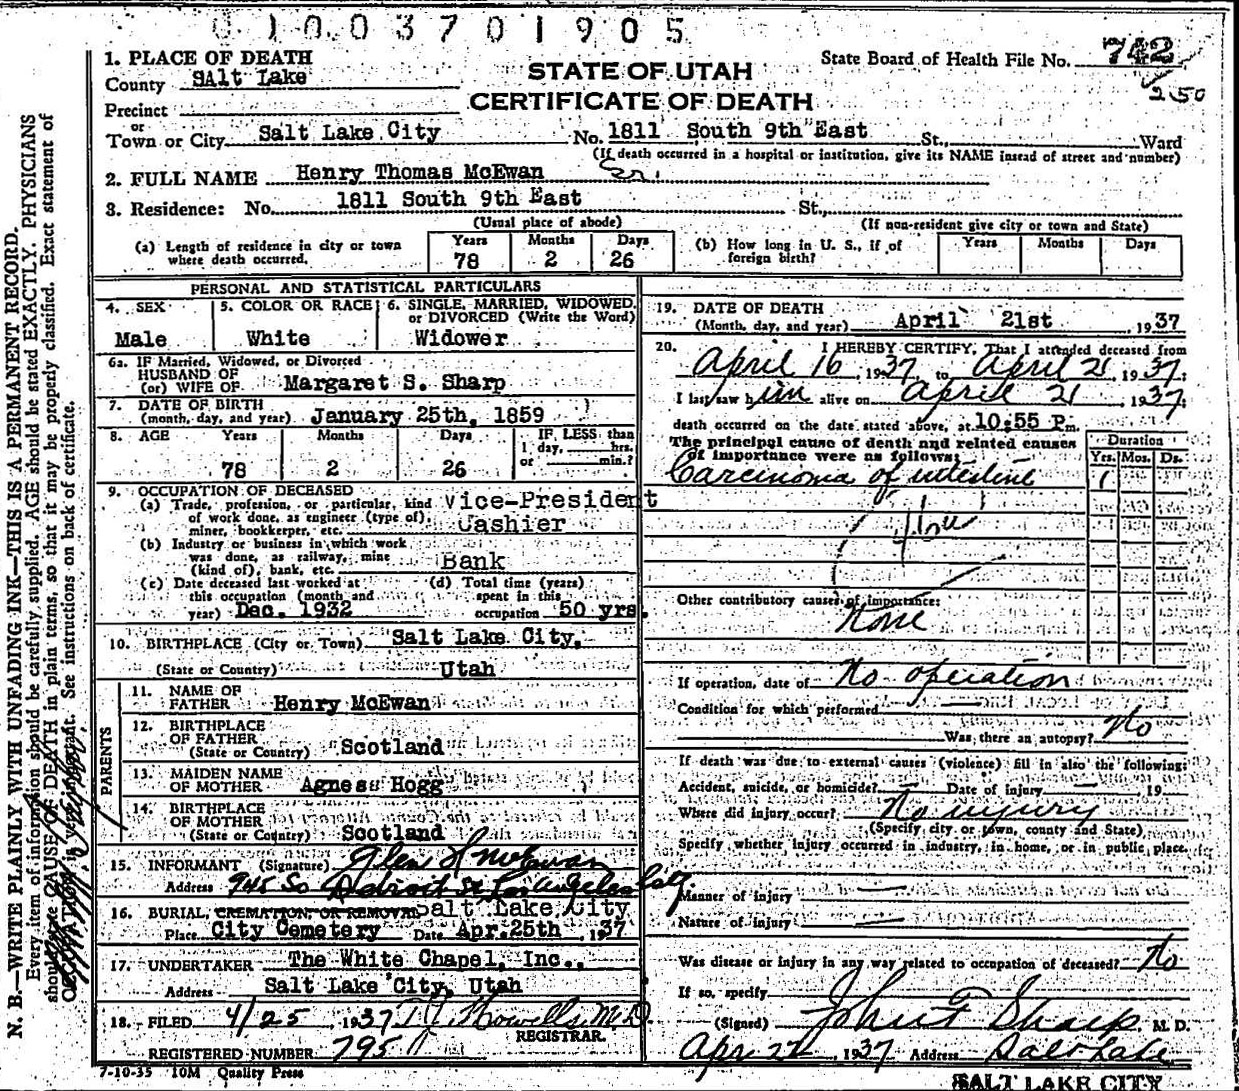 0 1 0 0 3 7 0 1 9 0 5
1. PLACE OF DEATH
County SAlt Lake
STATE OF UTAH
CERTIFICATE OF DEATH
State Board of Health File No. 742
250
Precinct
or
Town or City Salt Lake City No. 1811 South 9th East St., Ward
(If death occurred in a hospital or institution, give its NAME instead of street and number)
2. FULL NAME Henry Thomas McEwan
3. Residence: No. 1811 South 9th East St.,
(Usual place of abode) (If non-resident give city or town and State)
(a) Length of residence in city or town where death occurred. Years 78 Months 2 Days 26
(b) How long in U. S., if of foreign birth? Years Months Days
PERSONAL AND STATISTICAL PARTICULARS
4. SEX Male
5. COLOR OR RACE White
6. SINGLE, MARRIED, WIDOWED, or DIVORCED (Write the Word) Widower
6a. IF Married, Widowed, or Divorced
HUSBAND OF
(or) WIFE OF Margaret S. Sharp
7. DATE OF BIRTH
(month, day, and year) January 25th, 1859
8. AGE Years 78 Months 2 Days 26 IF LESS than 1 day, hrs. or min.?
9. OCCUPATION OF DECEASED
(a) Trade, profession, or particular, kind of work done, as engineer (type of), miner, bookkeeper, etc. Vice-President Cashier
(b) Industry or business in which work was done, as railway, mine (kind of), bank, etc. Bank
(c) Date deceased last worked at this occupation (month and year) Dec. 1932
(d) Total time (years) spent in this occupation 50 yrs.
10. BIRTHPLACE (City or Town) Salt Lake City,
(State or Country) Utah
PARENTS
11. NAME OF FATHER Henry McEwan
12. BIRTHPLACE OF FATHER
(State or Country) Scotland
13. MAIDEN NAME OF MOTHER Agness Hogg
14. BIRTHPLACE OF MOTHER
(State or Country) Scotland
15. INFORMANT (Signature) Glen H McEwan
Address 945 So Detroit St Los Angeles
16. BURIAL, CREMATION, OR REMOVAL Salt Lake City
Place City Cemetery Date Apr. 25th 1937
17. UNDERTAKER The White Chapel, Inc.,
Address Salt Lake City, Utah
18. FILED 4/25 1937 T J Howells M D
REGISTRAR.
REGISTERED NUMBER 795
7-10-35 10M Quality Press
19. DATE OF DEATH
(Month, day, and year) April 21st 1937
20. I HEREBY CERTIFY, That I attended deceased from
April 16, 1937 to April 21, 1937;
I last saw him alive on April 21, 1937;
death occurred on the date stated above, at 10:55 P m.
The principal cause of death and related causes of importance were as follows:
Duration
Yrs. Mos. Ds.
Carcinoma of intestine 1
Other contributory causes of importance:
None
If operation, date of No operation
Condition for which performed
Was there an autopsy? No
If death was due to external causes (violence) fill in also the following:
Accident, suicide, or homicide? — Date of injury — 19
Where did injury occur? No injury
(Specify city or town, county and State)
Specify whether injury occurred in industry, in home, or in public place.
Manner of injury —
Nature of injury —
Was disease or injury in any way related to occupation of deceased? No
If so, specify
(Signed) John F Sharp M. D.
Apr 22, 1937 Address Salt Lake
SALT LAKE CITY
N. B.—WRITE PLAINLY WITH UNFADING INK—THIS IS A PERMANENT RECORD.
Every item of information should be carefully supplied. AGE should be stated EXACTLY. PHYSICIANS
should state CAUSE OF DEATH in plain terms, so that it may be properly classified. Exact statement of
OCCUPATION is very important. See instructions on back of certificate.